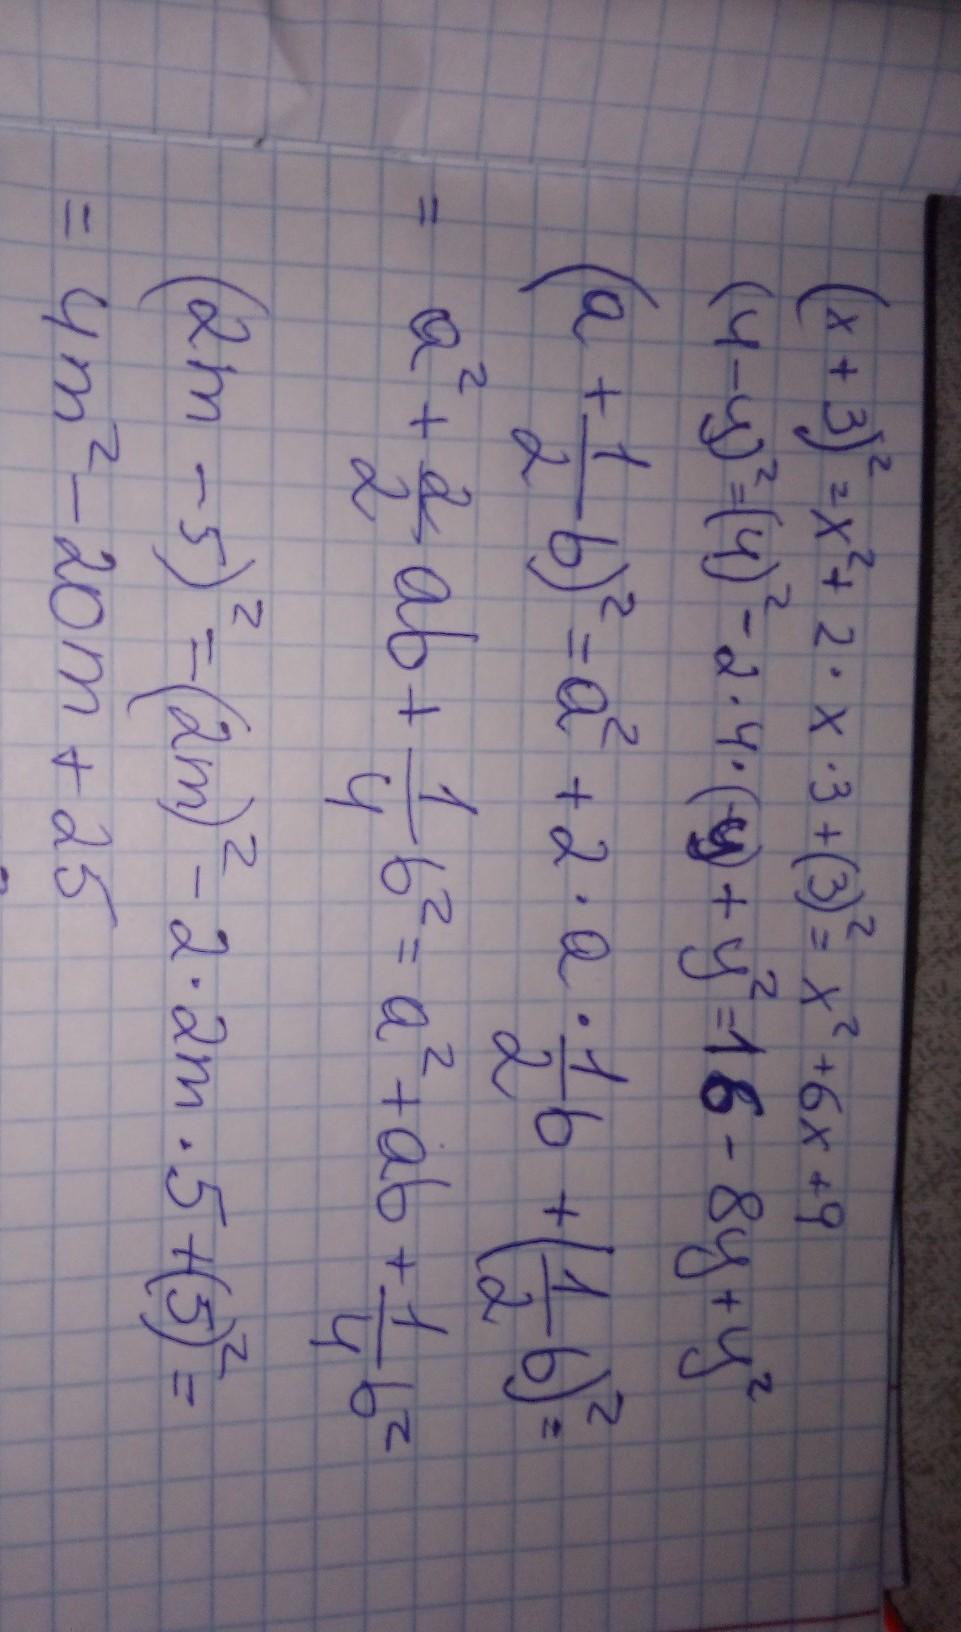 (x + 3)² = x² + 2 · x · 3 + (3)² = x² + 6x + 9
(4 - y)² = (4)² - 2 · 4 · (y) + y² = 16 - 8y + y²
(a + 1/2 b)² = a² + 2 · a · 1/2 b + (1/2 b)² =
= a² + 2/2 ab + 1/4 b² = a² + ab + 1/4 b²
(2m - 5)² = (2m)² - 2 · 2m · 5 + (5)² =
= 4m² - 20m + 25